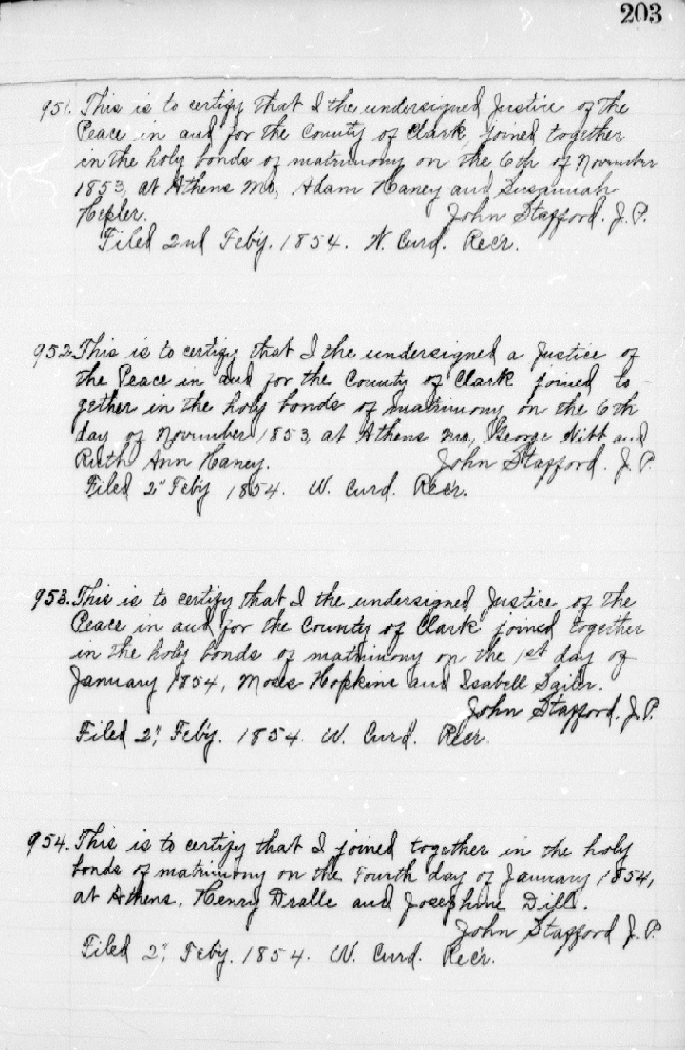 203
951. This is to certify that I the undersigned Justice of the
Peace in and for the County of Clark, joined together
in the holy bonds of matrimony on the 6th of November
1853, at Athens Mo, Adam Haney and Susannah
Hepler. John Stafford. J.P.
Filed 2nd Feb'y. 1854. W. Curd. Recr.
952. This is to certify that I the undersigned a Justice of
the Peace in and for the County of Clark joined to
gether in the holy bonds of matrimony on the 6th
day of November 1853, at Athens Mo, George Nibb and
Ruth Ann Haney. John Stafford. J.P.
Filed 2" Feb'y 1854. W. Curd. Rec'r.
953. This is to certify that I the undersigned Justice of the
Peace in and for the County of Clark joined together
in the holy bonds of matrimony on the 1st day of
January 1854, Moses Hopkins and Isabell
John Stafford. J.P.
Filed 2", Feb'y. 1854. W. Curd. Rec'r.
954. This is to certify that I joined together in the holy
bonds of matrimony on the Fourth day of January 1854,
at Athens, Henry Dralle and Josephine Dill.
John Stafford J.P.
Filed 2", Feb'y. 1854. W. Curd. Rec'r.